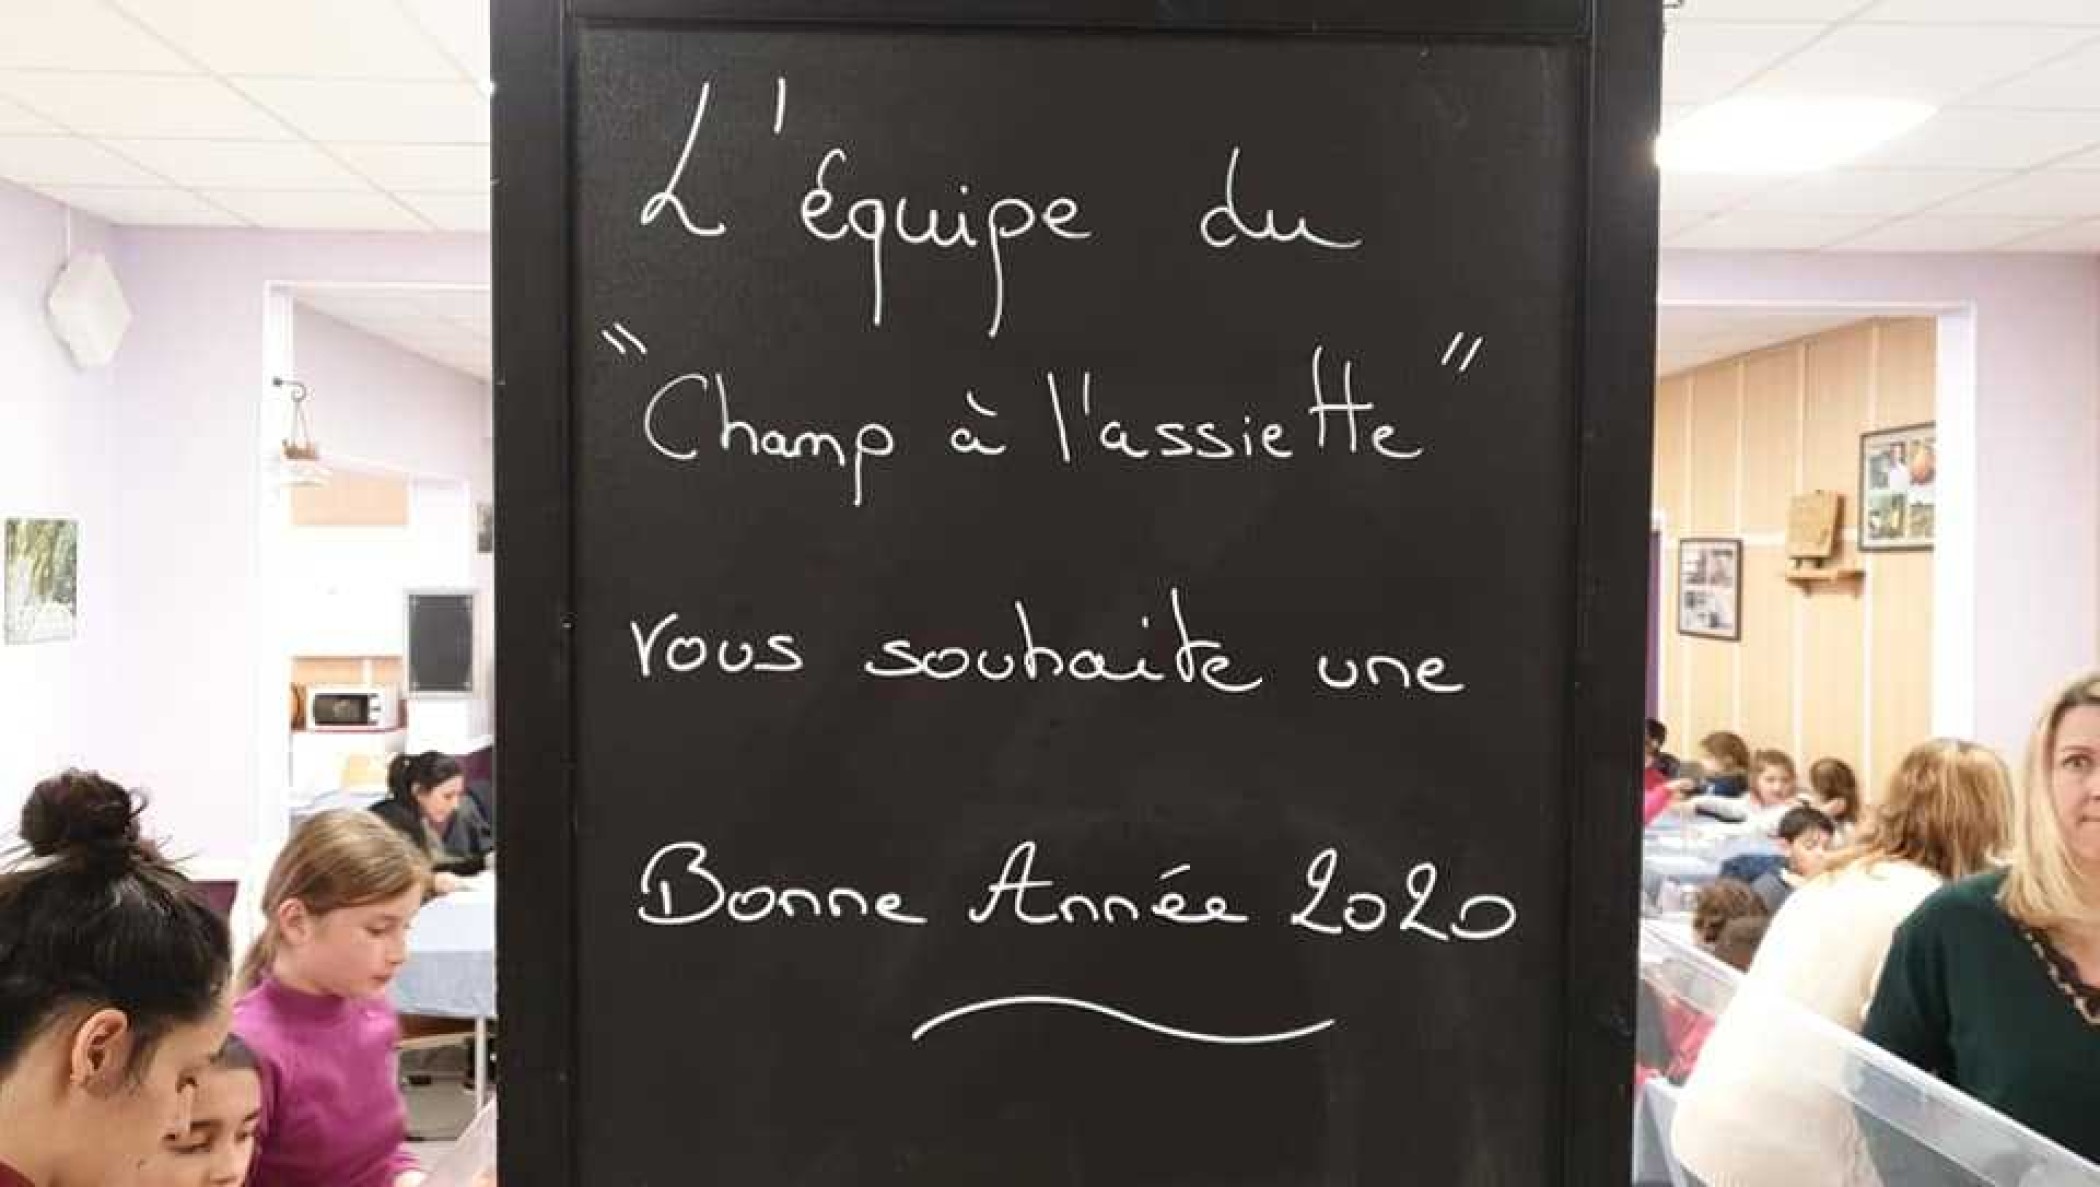 L'équipe du
"Champ à l'assiette"
vous souhaite une
Bonne Année 2020